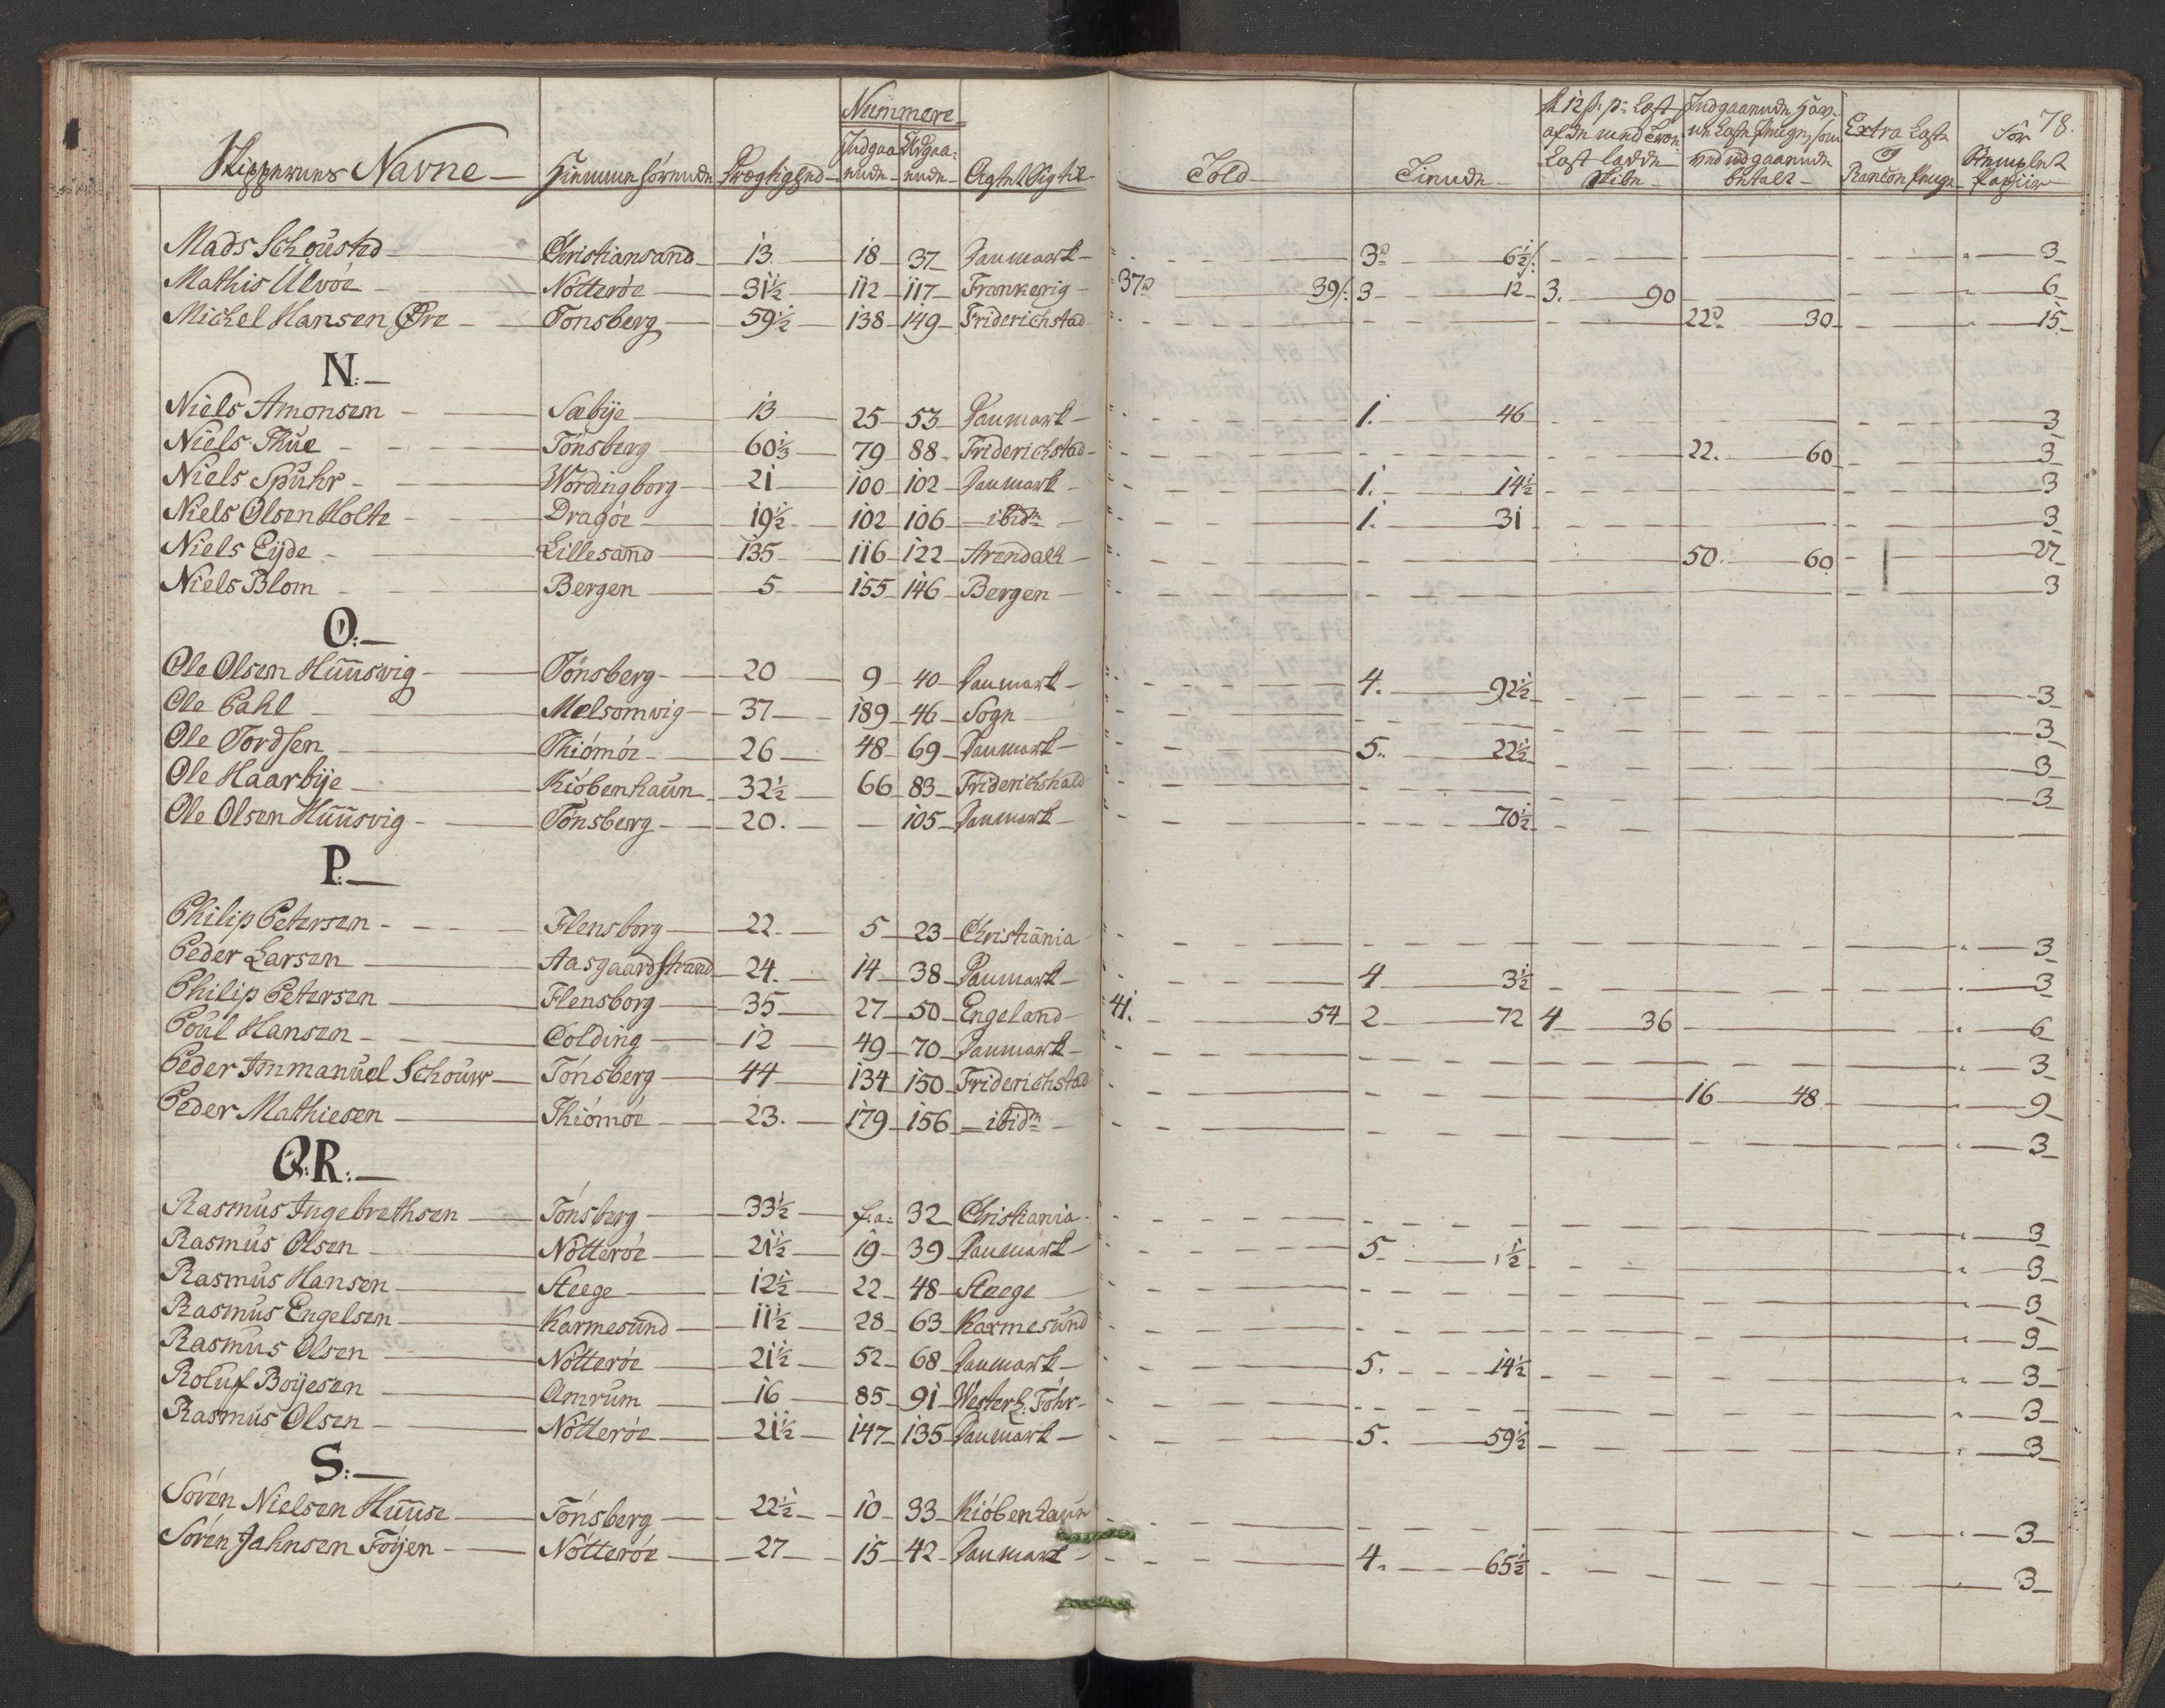 78.
Nummere
Skippernes Navne Hiemmehörende Drægtighed Indgaaende Udgaaende Agtet Sig til Told Tiende á 12 s: pr: Læst af de med Læst ladde Skibe Indgaaende Læste Penge, som ved udgaaende betalt Extra Læste og Rancon Penge For Stemplet Papiir
Mads Schousted Christiansand 13 18 37 Danmark 3 6½ 3
Mathis Ulvöe Nötteröe 31½ 112 117 Frankerig 37 39 3 12 3. 90 6
Michel Hansen Øre Tonsberg 59½ 138 149 Friderichstad 22 30 15
N:
Niels Amonsen Sæbye 13 25 53 Danmark 1. 46 3
Niels Thue Tönsberg 60⅓ 79 88 Friderichstad 22. 60 3
Niels Spuhr Wordingborg 21 100 102 Danmark 1. 14½ 3
Niels Olsen Holte Dragöe 19½ 102 106 ibidm 1. 31 3
Niels Eyde Lillesand 135 116 122 Arendahl 50. 60 27
Niels Blom Bergen 5 155 146 Bergen 3
O:
Ole Olsen Huusvig Tönsberg 20 9 40 Danmark 4. 92½ 3
Ole Dahl Melsomvig 37 189 46 Sogn 3
Ole Tordsen Thiömöe 26 48 69 Danmark 5. 22½ 3
Ole Haarbye Kiöbenhaun 32½ 66 83 Friderichshald 3
Ole Olsen Huusvig Tönsberg 20. 105 Danmark 70½
P:
Philip Petersen Flensborg 22. 5 23 Christiania 3
Peder Larsen Aasgaardstrand 24. 14 38 Danmark 4 3½ 3
Philip Petersen Flensborg 35 27 50 Engeland 41. 54 2 72 4 36 6
Poul Hansen Colding 12 49 70 Danmark 3
Peder Immanuel Schouw Tönsberg 44 134 150 Friderichstad 16 48 9
Peder Mathiesen Thiömöe 23. 179 156 ibidm 3
Q:R:
Rasmus Ingebrethsen Tönsberg 33½ f:a: 32 Christiania 3
Rasmus Olsen Nötteröe 21½ 19 39 Danmark 5 ½ 3
Rasmus Hansen Steege 12½ 22 48 Steege 3
Rasmus Engelsen Karmesund 11½ 28 63 Karmesund 3
Rasmus Olsen Nötteröe 21½ 52 68 Danmark 5. 14½ 3
Roluf Boyesen Amrum 16 85 91 Westerl: Föhr 3
Rasmus Olsen Nötteröe 21½ 147 135 Danmark 5. 59½ 3
S:
Sören Nielsen Huuse Tönsberg 22½ 10 33 Kiöbenhaun 3
Sören Jahnsen Föyen Nötteröe 27 15 42 Danmark 4. 65½ 3